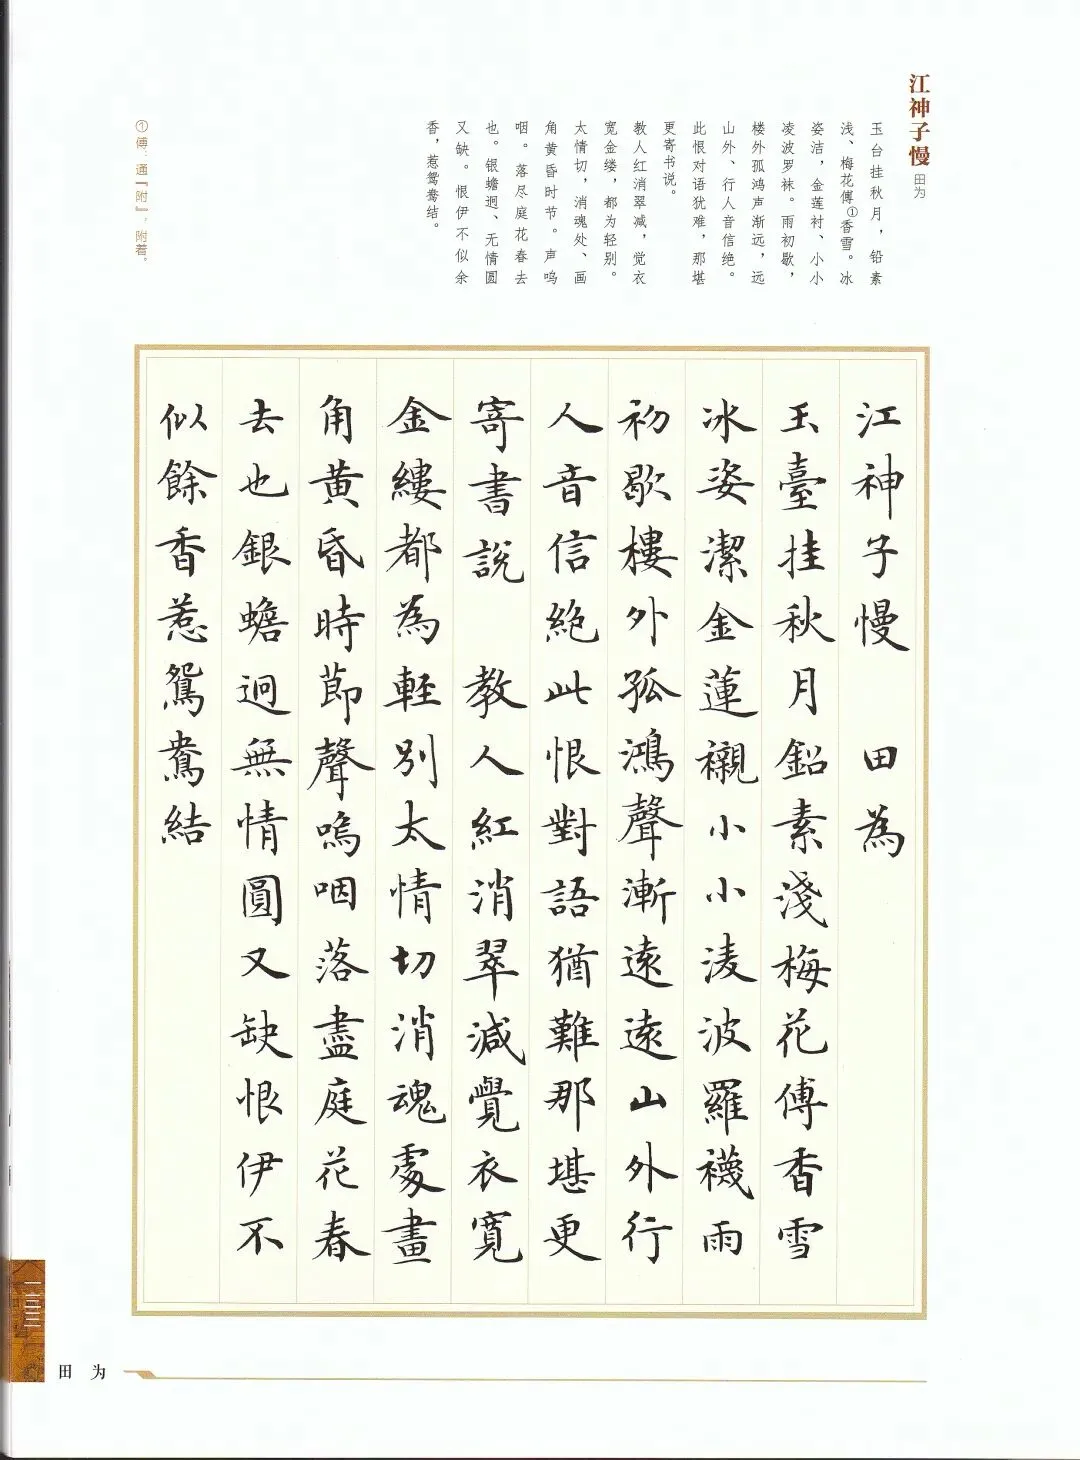 江神子慢 田为
玉台挂秋月，铅素
浅、梅花傅①香雪。冰
姿洁，金莲衬、小小
凌波罗袜。雨初歇，
楼外孤鸿声渐远，远
山外、行人音信绝。
此恨对语犹难，那堪
更寄书说。
教人红消翠减，觉衣
宽金缕，都为轻别。
太情切，消魂处、画
角黄昏时节。声呜
咽。落尽庭花春去
也。银蟾迥、无情圆
又缺。恨伊不似余
香，惹鸳鸯结。
①傅：通『附』，附着。
江神子慢 田為
玉臺挂秋月鉛素淺梅花傅香雪
冰姿潔金蓮襯小小淩波羅襪雨
初歇樓外孤鴻聲漸遠遠山外行
人音信絶此恨對語猶難那堪更
寄書說 教人紅消翠減覺衣寬
金縷都為輕别太情切消魂處畫
角黄昏時節聲嗚咽落盡庭花春
去也銀蟾迥無情圓又缺恨伊不
似餘香惹鴛鴦結
一三三
田为